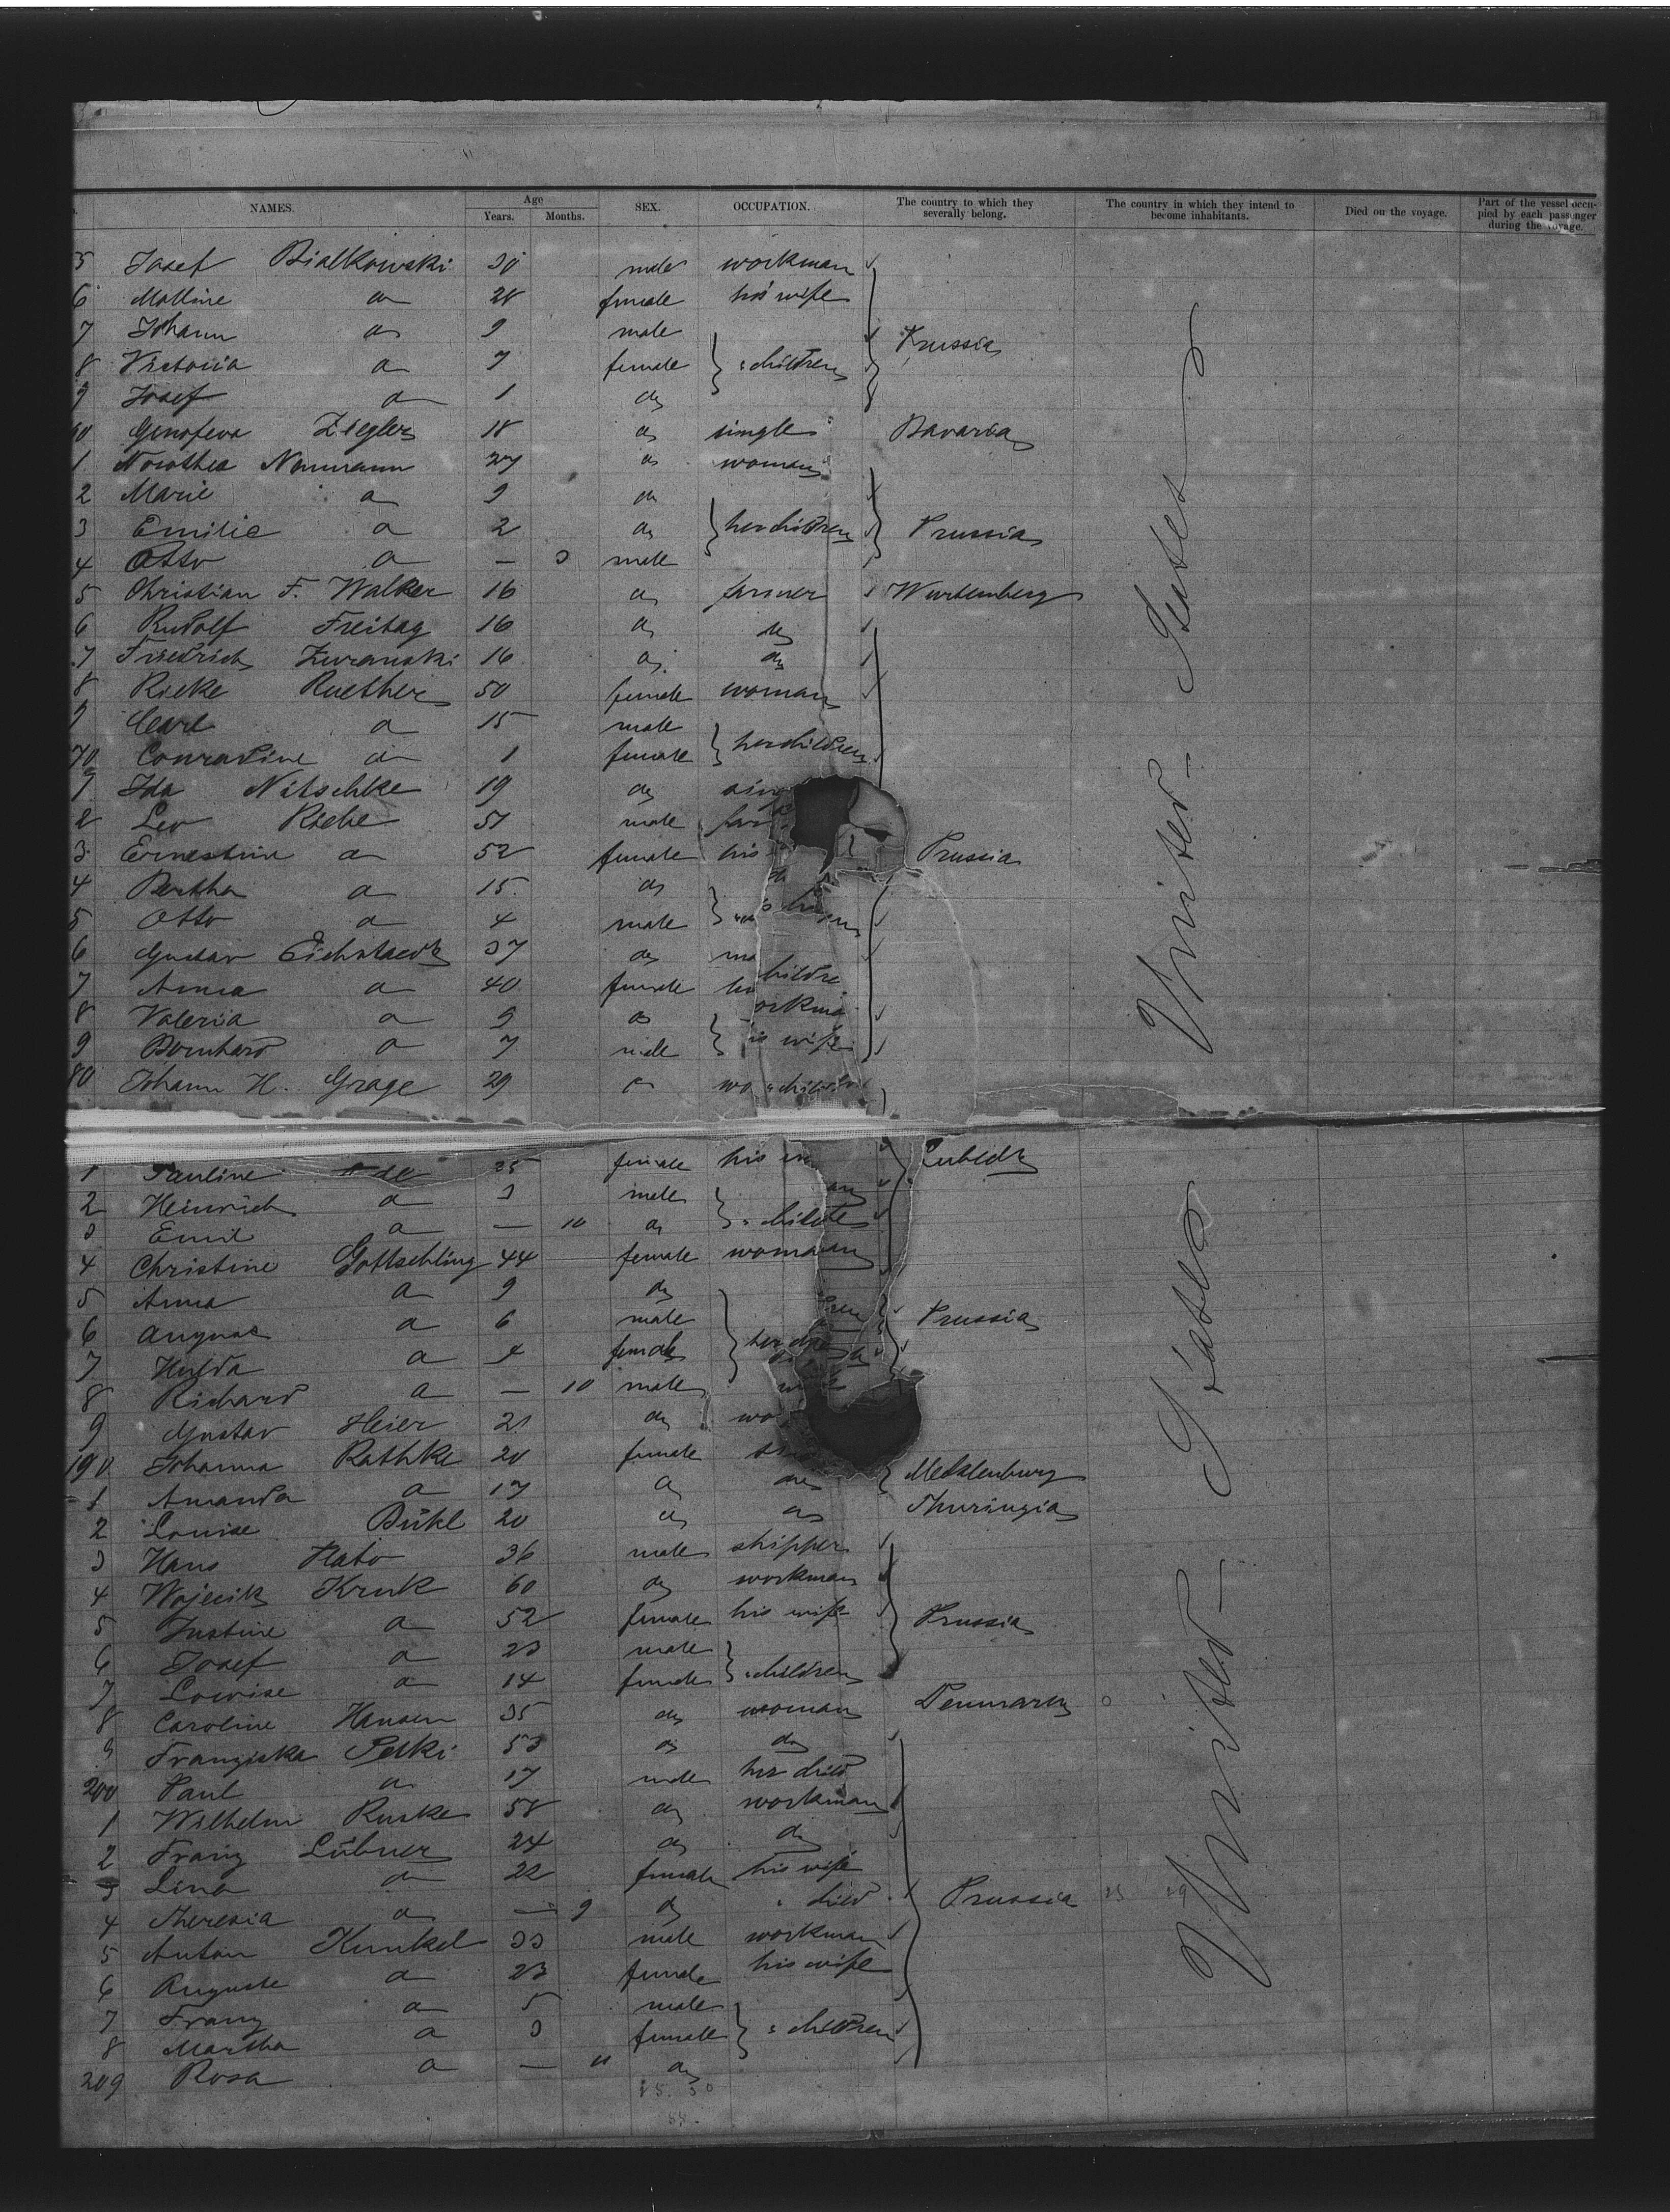 NAMES. Age Years. Months. SEX. OCCUPATION. The country to which they severally belong. The country in which they intend to become inhabitants. Died on the voyage. Part of the vessel occupied by each passenger during the voyage.
5 Josef Bialkowski 30 male workman
6 female his wife
7 Johann do 9 male
8 Victoria do 7 female children Prussia
9 Josef do 1 do
60 Genofeva Ziegler 18 do single Bavaria
1 Dorothea Neumann 27 do woman
2 Marie do 9 do
3 Emilie do 2 do her children Prussia
4 Otto do — 3 male
5 Christian F. Walker 16 do farmer Wurtemberg
6 Rudolf Freitag 16 do do
7 Friedrich Zuranski 16 do do
8 Rieke Ruether 50 female woman
9 Carl do 15 male
70 Conradine do 1 female her children
1 Ida Nitschke 19 do sing
2 Leo 51 male far
3 Ernestine do 52 female his Prussia
4 Bertha do 15 do
5 Otto do 4 male
6 Gustav Eichstaedt 37 do
7 Anna do 40 female
8 Valeria do 9 do
9 Bernhard do 7 male
80 Johann H. Grage 29 do wo
United States
1 Pauline do 25 female his Lubeck
2 Heinrich do 3 male
3 Emil do — 10 do
4 Christine Gottschling 44 female woman
5 Anna do 9 do
6 August do 6 male Prussia
7 Hulda do 4 female her
8 Richard do — 10 male
9 Gustav Heier 21 do wo
190 Johanna Rathke 20 female
1 Amanda do 17 do do Mecklenburg
2 Louise Bükl 20 do do Thuringia
3 Hans Plato 36 male shipper
4 Wojecik Kruk 60 do workman
5 Justine do 52 female his wife Prussia
6 Josef do 23 male
7 Lowise do 14 female children
8 Caroline Hansen 35 do woman Denmark
9 Franziska Petki 53 do do
200 Paul do 17 male her child
1 Wilhelm Ruske 58 do workman
2 Franz Lübner 24 do do
3 Lina do 22 female his wife
4 Theresia do — 9 do child Prussia
5 Anton Kunkel 33 male workman
6 Auguste do 23 female his wife
7 Franz do 5 male
8 Martha do 3 female children
209 Rosa do — 11 do
United States